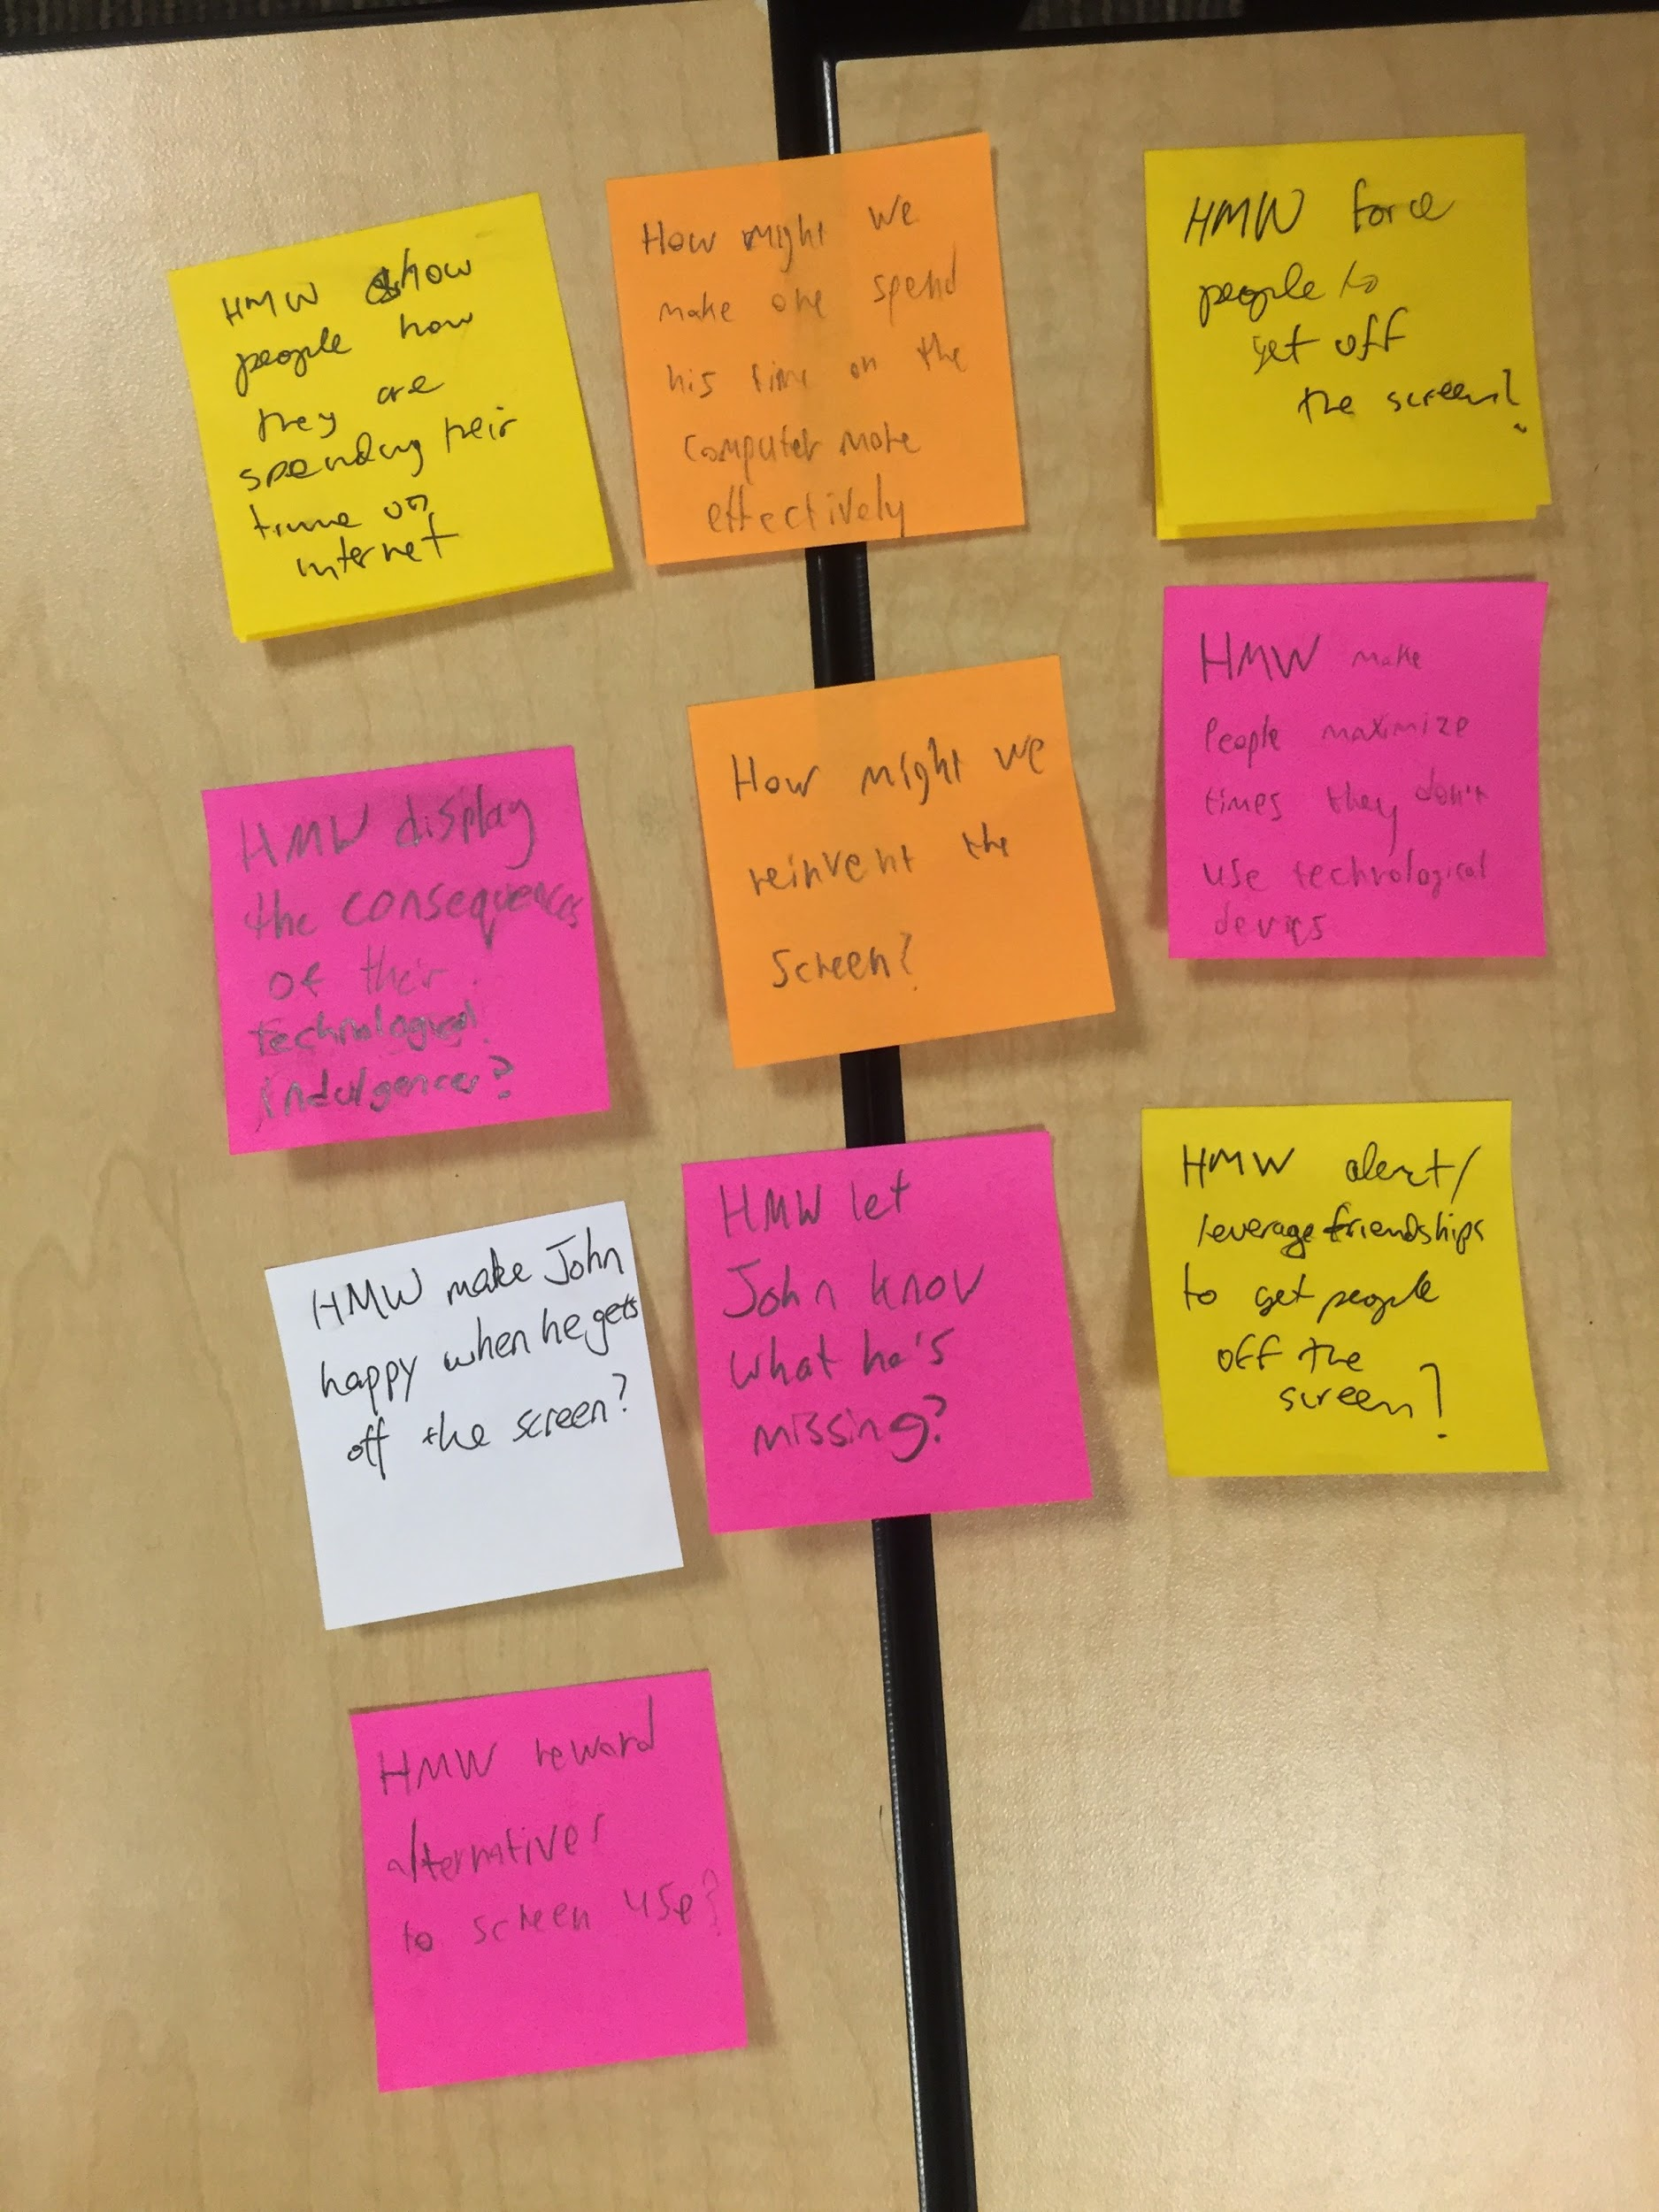 HMW show
people how
they are
spending their
time on
internet
How might we
make one spend
his time on the
computer more
effectively
HMW force
people to
get off
the screen?
HMW display
the consequences
of their
technological
indulgences?
How might we
reinvent the
screen?
HMW make
People maximize
times they don't
use technological
devices
HMW make John
happy when he gets
off the screen?
HMW let
John know
what he's
missing?
HMW alert/
leverage friendships
to get people
off the
screen?
HMW reward
alternatives
to screen use?